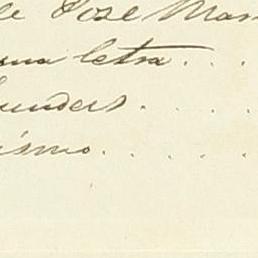 de José Man
una letra. . .
unders. . . .
ismo. . . . .